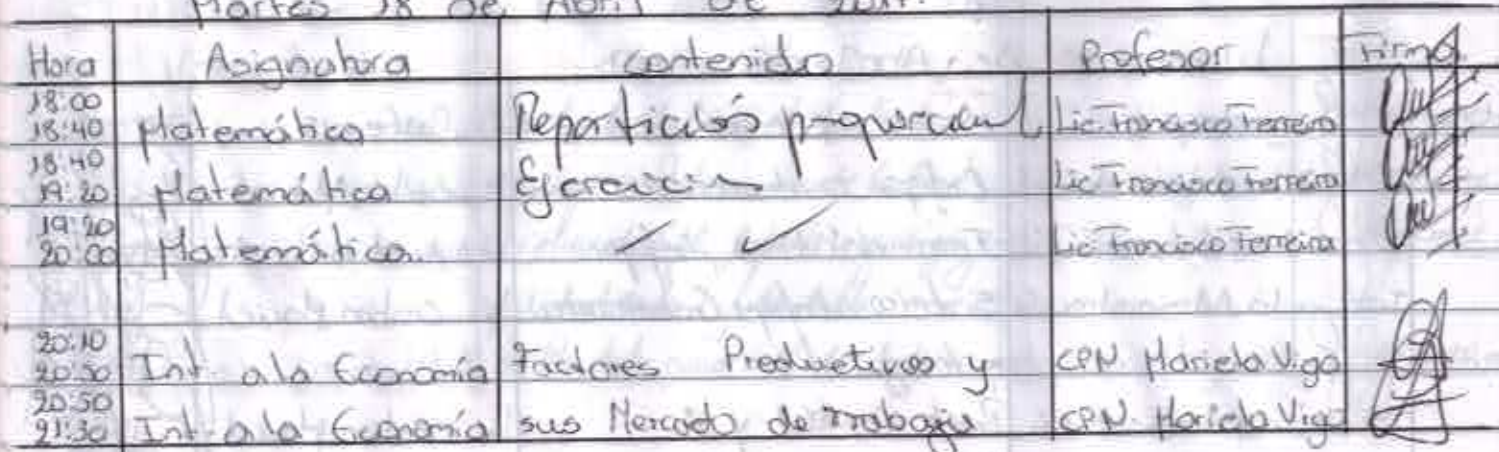 Martes 18 de Abril de
Hora Asignatura contenido Profesor Firma
18:00
18:40 Matemática Repartición proporcional Lic. Francisco Ferreira
18:40
19:20 Matemática Ejercicios Lic. Francisco Ferreira
19:20
20:00 Matemática. Lic. Francisco Ferreira
20:10
20:50 Int. a la Economía Factores Productivos y CPN. Mariela Vigo
20:50
21:30 Int. a la Economía sus Mercado de Trabajo CPN. Mariela Vigo